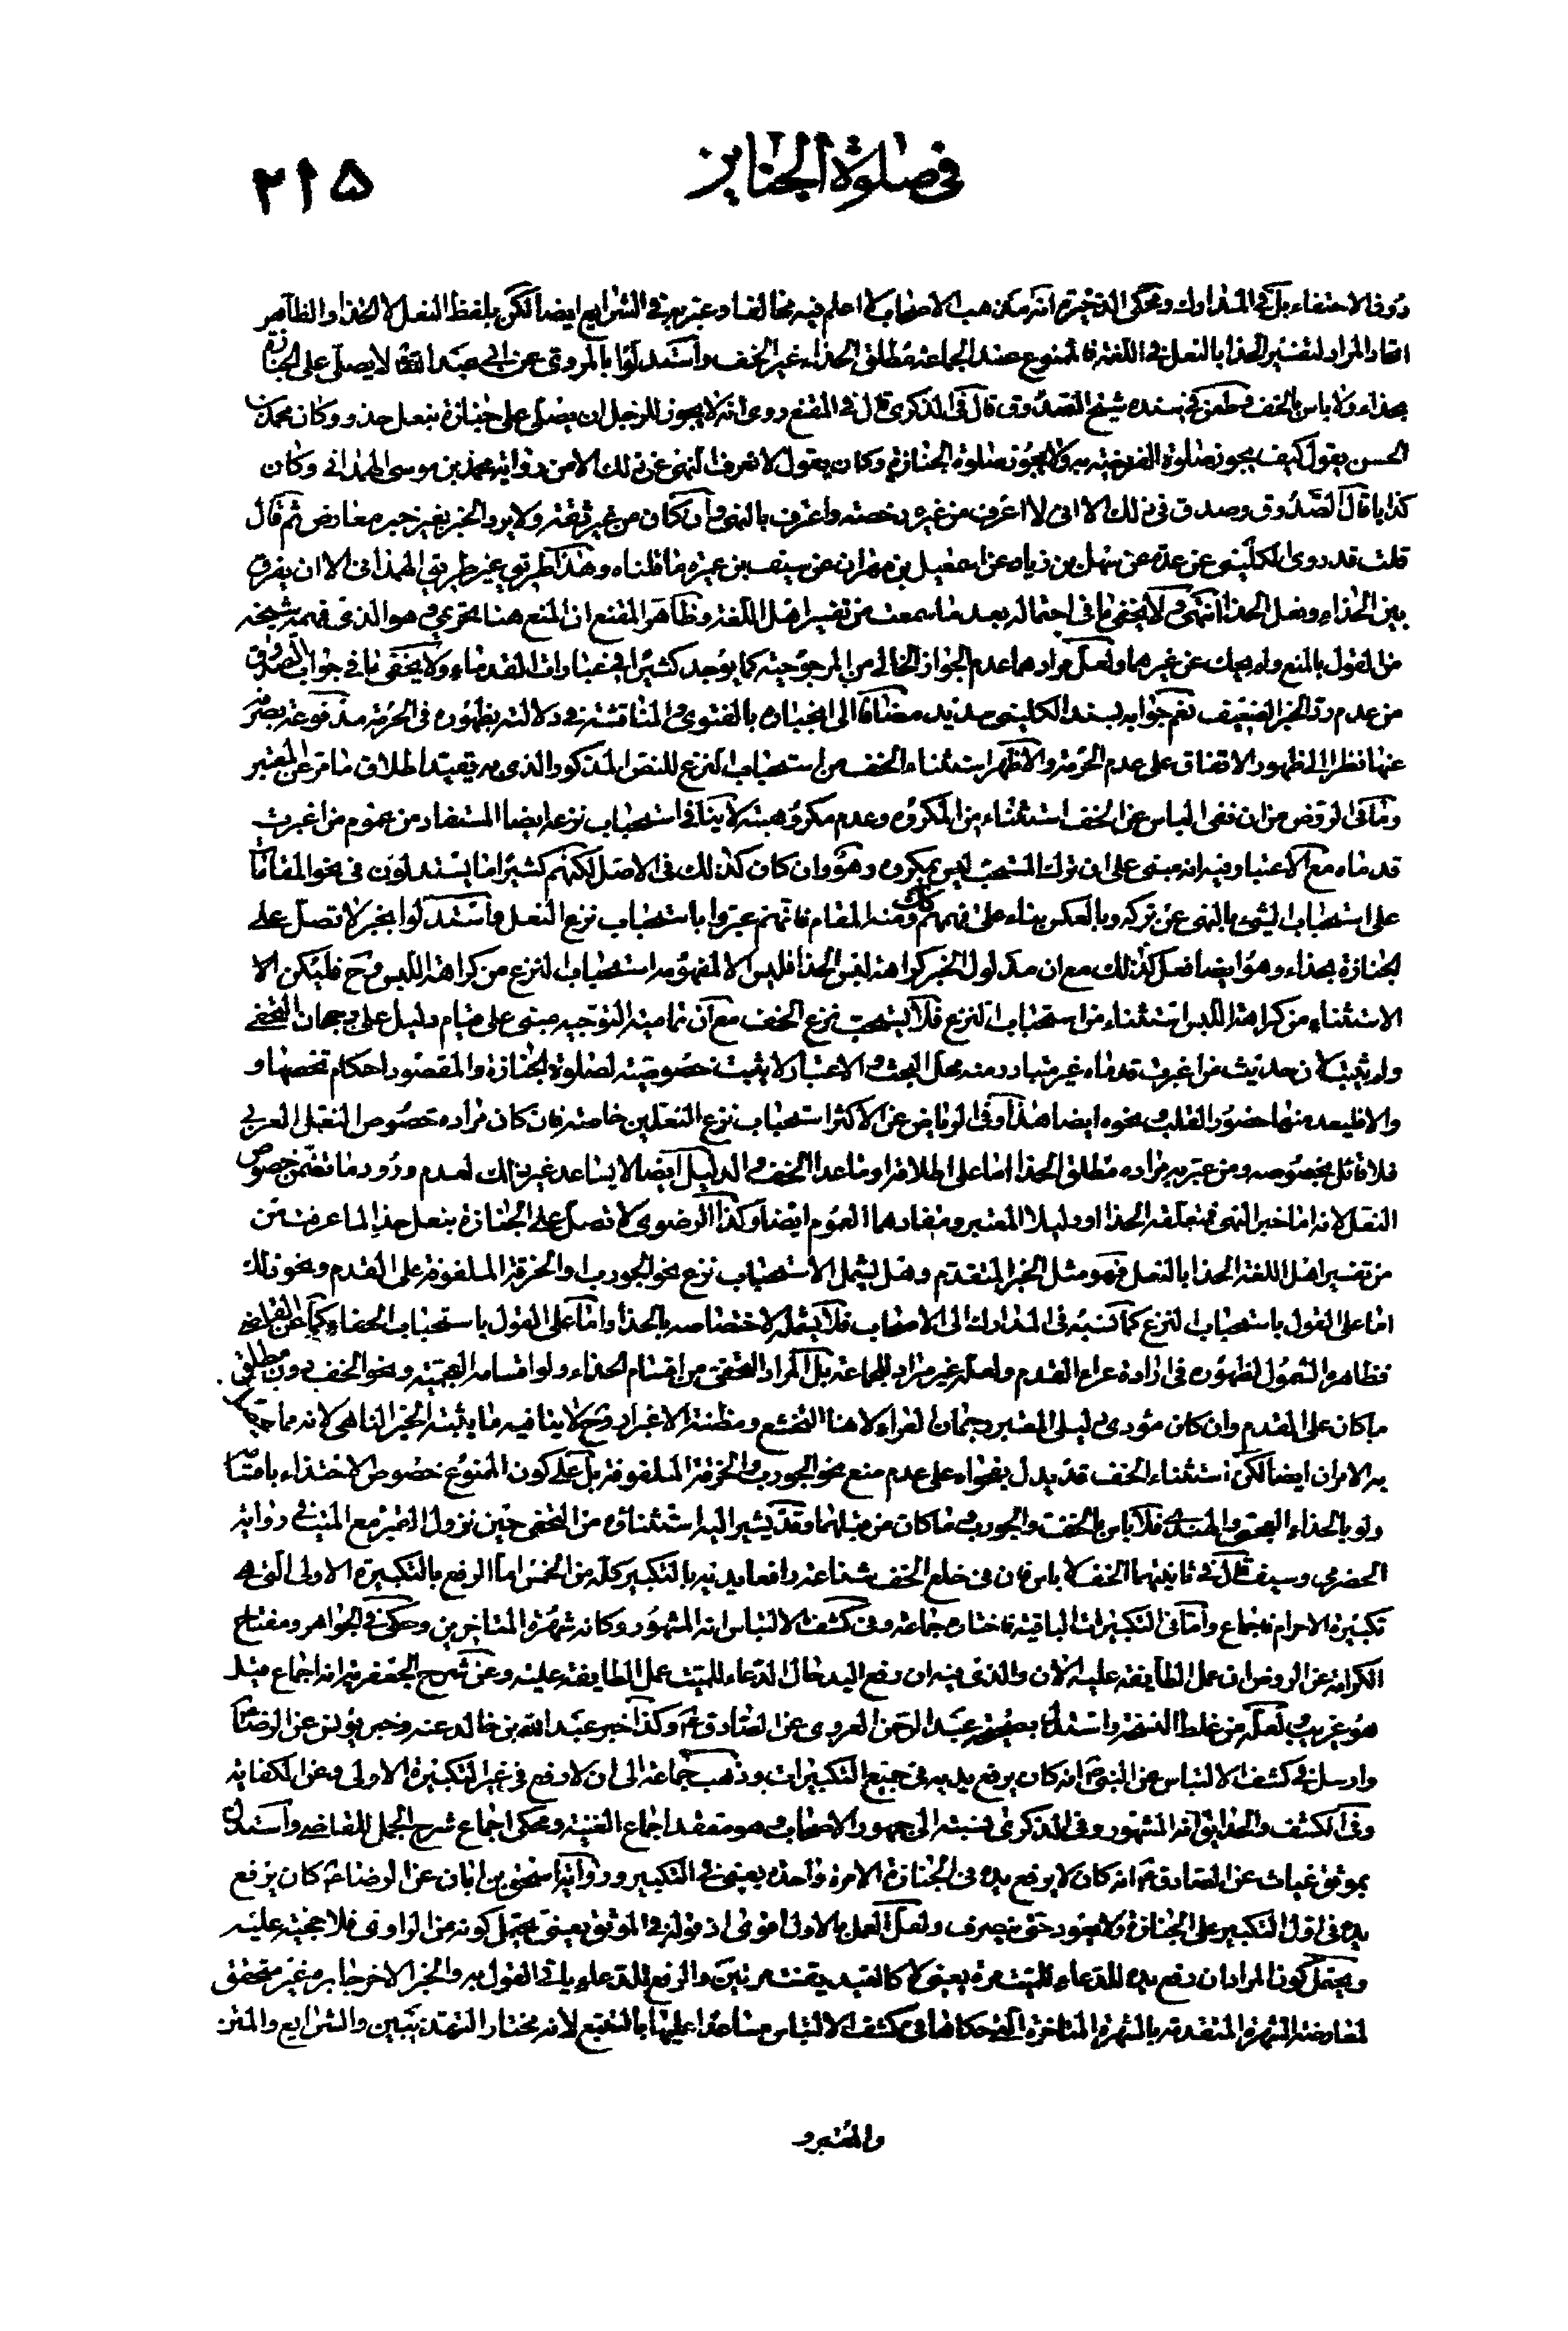 في صلوة الجنايز
٢١٥
دون الاحتفاء بل في المدارك ومحكى الذخيرة انه مذهب الاصحاب لا اعلم فيه مخالفا وعبر به في الشرايع ايضا لكن بلفظ النعل لا الحذاء والظاهر
اتحاد المراد لتفسير الحذاء بالنعل في اللغة فالممنوع عند الجماعة مطلق الحذاء غير الخف واستدلوا بالمروى عن ابي عبد الله لا يصلى على الجنازة
بحذاء ولا باس بالخف وطعن في سنده شيخ الصدوق قال في الذكرى قال في المقنع روى انه لا يجوز للرجل ان يصلى على جنازة بنعل حذو وكان محمد بن
الحسن يقول كيف يجوز صلوة الفريضة به ولا يجوز صلوة الجنازة وكان يقول لا نعرف النهى عن ذلك الا من رواية محمد بن موسى الهمداني وكان
كذابا قال الصدوق وصدق في ذلك الا انى لا اعرف من غيره رخصة واعرف بالنهى وان كان من غير ثقة ولا يرد الخبر بغير خبر معارض ثم قال
قلت قد روى الكليني عن عدة عن سهل بن زياد عن اسمعيل بن مهران عن سيف بن عميرة ما قلناه وهذا طريق غير طريق الهمداني الا ان يفرق
بين الحذاء ونعل الحذاء انتهى ولا يخفى ما في احتماله بعد ما سمعت من تفسير اهل اللغة وظاهر المقنع ان المنع هنا تحريمي وهو الذى فهمه شيخه
من القول بالمنع ولم يحك عن غيرهما ولعل مرادهما عدم الجواز الخالي من المرجوحية كما يوجد كثيرا في عبارات القدماء ولا يخفى ما في جواب الصدوق
من عدم رد الخبر الضعيف نعم جوابه بسند الكليني سديد مضافا الى انجباره بالفتوى والمناقشة في دلالته بظهوره في الحرمة مدفوعة بصرفه
عنها نظرا الى ظهور الاتفاق على عدم الحرمة والاظهر استثناء الخف من استحباب النزع للنص المذكور الذى به يقيد اطلاق ما مر عن المعتبر
وما في الروض من ان نفى الباس عن الخف استثناء من المكروه وعدم مكروهيته لا ينافى استحباب نزعه ايضا المستفاد من عموم من اغبرت
قدماه مع الاعتبار وفيه انه مبنى على ان ترك المستحب ليس بمكروه وهو وان كان كذلك في الاصل لكنهم كثيرا ما يستدلون في نحو المقامات
على استحباب الشيء بالنهى عن تركه وبالعكس بناء على فهمهم ذلك ومنه المقام فانهم عبروا باستحباب نزع النعل واستدلوا بخبر لا تصل على
الجنازة بحذاء وهو ايضا فعل كذلك مع ان مدلول الخبر كراهة لبس الحذاء فليس الا لمفهومه استحباب النزع من كراهة اللبس وح فليكن الا
الاستثناء من كراهة اللبس استثناء من استحباب النزع فلا يستحب نزع الخف مع ان تمامية التوجيه مبنى على قيام دليل على رجحان التحفى
ولم يثبت لان حديث من اغبرت قدماه غير متبادر منه محل البحث والاعتبار لا يثبت خصوصية لصلوة الجنازة والمقصود احكام تخصها و
والا فليعد منها حضور القلب ونحوه ايضا هذا وفي الرياض عن الاكثر استحباب نزع النعلين خاصة فان كان مراده خصوص النعل العربي
فلا قائل بخصوصه ومن عبر به مراده مطلق الحذاء اما على اطلاقه او ما عدا الخف والدليل ايضا لا يساعد غير ذلك لعدم ورود ما تضمن خصوص
النعل لانه اما خبر النهى فمتعلقه الحذاء او دليلا المعتبر ومفادهما العموم ايضا وكذا الرضوى لا تصل على الجنازة بنعل حذو لما عرفت من
من تفسير اهل اللغة الحذاء بالنعل فهو مثل الخبر المتقدم وهل يشمل الاستحباب نزع نحو الجورب والخرقة الملفوفة على القدم ونحو ذلك
اما على القول باستحباب النزع كما نسبه في المدارك الى الاصحاب فلا يشمله لاختصاصه بالحذاء واما على القول باستحباب الحفاء كما عن القاضى
فظاهر الشمول لظهوره في ارادة عراء القدم ولعله غير مراد للجماعة بل المراد التحفى من اقسام الحذاء ولو اقسامه العجمية ونحو الخف دون مطلق
ما كان على القدم وان كان مؤدى دليلى المعتبر رجحان العراء لا هنا التخشع ومظنة الاغبرار وح لا ينافيه ما يثبته الخبر الناهى لانه مما يتحقق
به الامران ايضا لكن استثناء الخف قد يدل بفحواه على عدم منع نحو الجورب والخرقة الملفوفة بل على كون الممنوع خصوص الاحتذاء باقسامه
ولو بالحذاء العجمى والهندى فلا باس بالخف والجورب وما كان من قبلهما وقد يشير اليه استثناؤه من التحفى حين نزول القبر مع الميت في رواية
الحضرمي وسيف قال في ثانيتهما الخف لا باس فان في خلع الخف شناعة رافعا يديه بالتكبير كله من الخمس اما الرفع بالتكبيرة الاولى التي هى
تكبيرة الاحرام فاجماع واما في التكبيرات الباقية فاختاره جماعة وفى كشف الالتباس انه المشهور وكانه شهرة المتاخرين وحكى في الجواهر ومفتاح
الكرامة عن الروض ان عمل الطايفة عليه الان والذى فيه ان رفع اليد حال الدعاء للميت عمل الطايفة عليه وعن شرح الجعفرية انه اجماع قيل
هو غريب ولعله من غلط النسخة واستدل بصحيح عبد الرحمن العرزمى عن الصادق ع وكذا خبر عبد الله بن خالد عنه وخبر يونس عن الرضا ع
وارسل في كشف الالتباس عن النبى ص انه كان يرفع يديه في جميع التكبيرات وذهب جماعة الى ان لا رفع في غير التكبيرة الاولى وعن الكفاية
وفى الكشف والحدايق انه المشهور وفى الذكرى نسبته الى جمهور الاصحاب وهو معقد اجماع الغنية ومحكى اجماع شرح الجمل للقاضى واستدل
بموثق غياث عن الصادق ع انه كان لا يرفع يده في الجنازة الا مرة واحدة يعنى في التكبير ورواية اسمعيل بن ابان عن الرضا ع كان يرفع
يده في اول التكبير على الجنازة ولا يعود حتى ينصرف ولعل العمل بالاول اقوى اذ قوله في الموثق يعنى يحتمل كونه من الراوى فلا حجية عليه
ويحتمل كون المراد ان رفع يده للدعاء للميت مرة يعنى لا كالعيد يقنت مرتين والرفع للدعاء ياتى القول به والخبر الاخر جابره غير متحقق
لمعارضة الشهرة المتقدمة بالشهرة المتاخرة التي حكاها في كشف الالتباس مساعدا عليها بالتتبع لانه مختار التهذيبين والشرايع والمتن
والمعتبر و